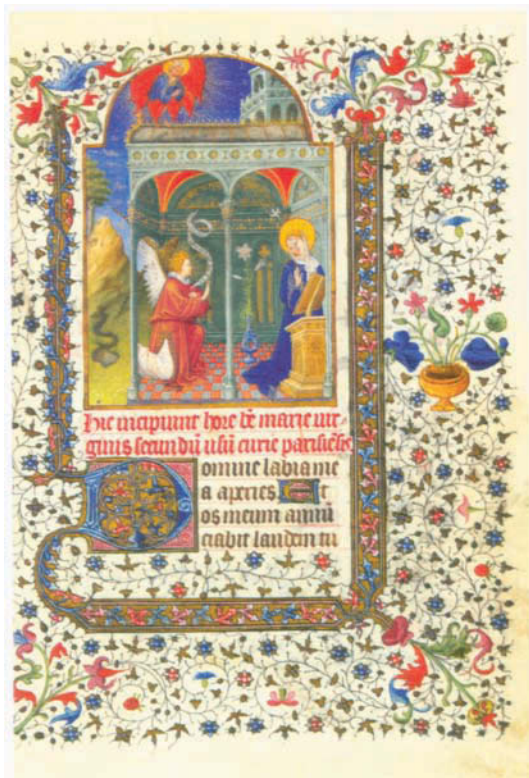 Hic incipiunt hore bē marie vir-
ginis secundū usū curie parisiēsis
Domine labia me
a aperies. Et
os meum annū
ciabit laudem tu